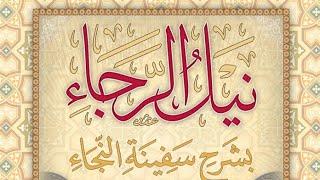 نيل الرجاء
بشرح سفينة النجاء